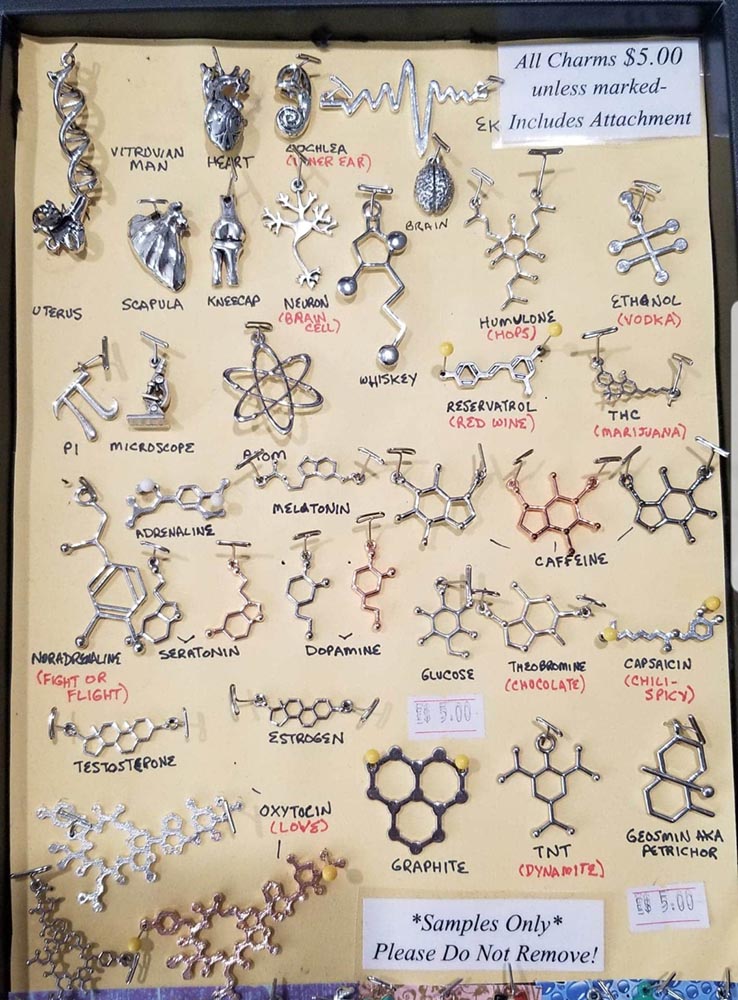 All Charms $5.00
unless marked-
Includes Attachment
VITRUVIAN
MAN
HEART
COCHLEA
(INNER EAR)
EK
BRAIN
UTERUS
SCAPULA
KNEECAP
NEURON
(BRAIN
CELL)
WHISKEY
HUMULONE
(HOPS)
ETHANOL
(VODKA)
RESERVATROL
(RED WINE)
THC
(MARIJUANA)
PI
MICROSCOPE
ATOM
ADRENALINE
MELATONIN
CAFFEINE
NORADRENALINE
(FIGHT OR
FLIGHT)
SERATONIN
DOPAMINE
GLUCOSE
THEOBROMINE
(CHOCOLATE)
CAPSAICIN
(CHILI-
SPICY)
5.00
TESTOSTERONE
ESTROGEN
OXYTOCIN
(LOVE)
GRAPHITE
TNT
(DYNAMITE)
GEOSMIN AKA
PETRICHOR
5.00
*Samples Only*
Please Do Not Remove!